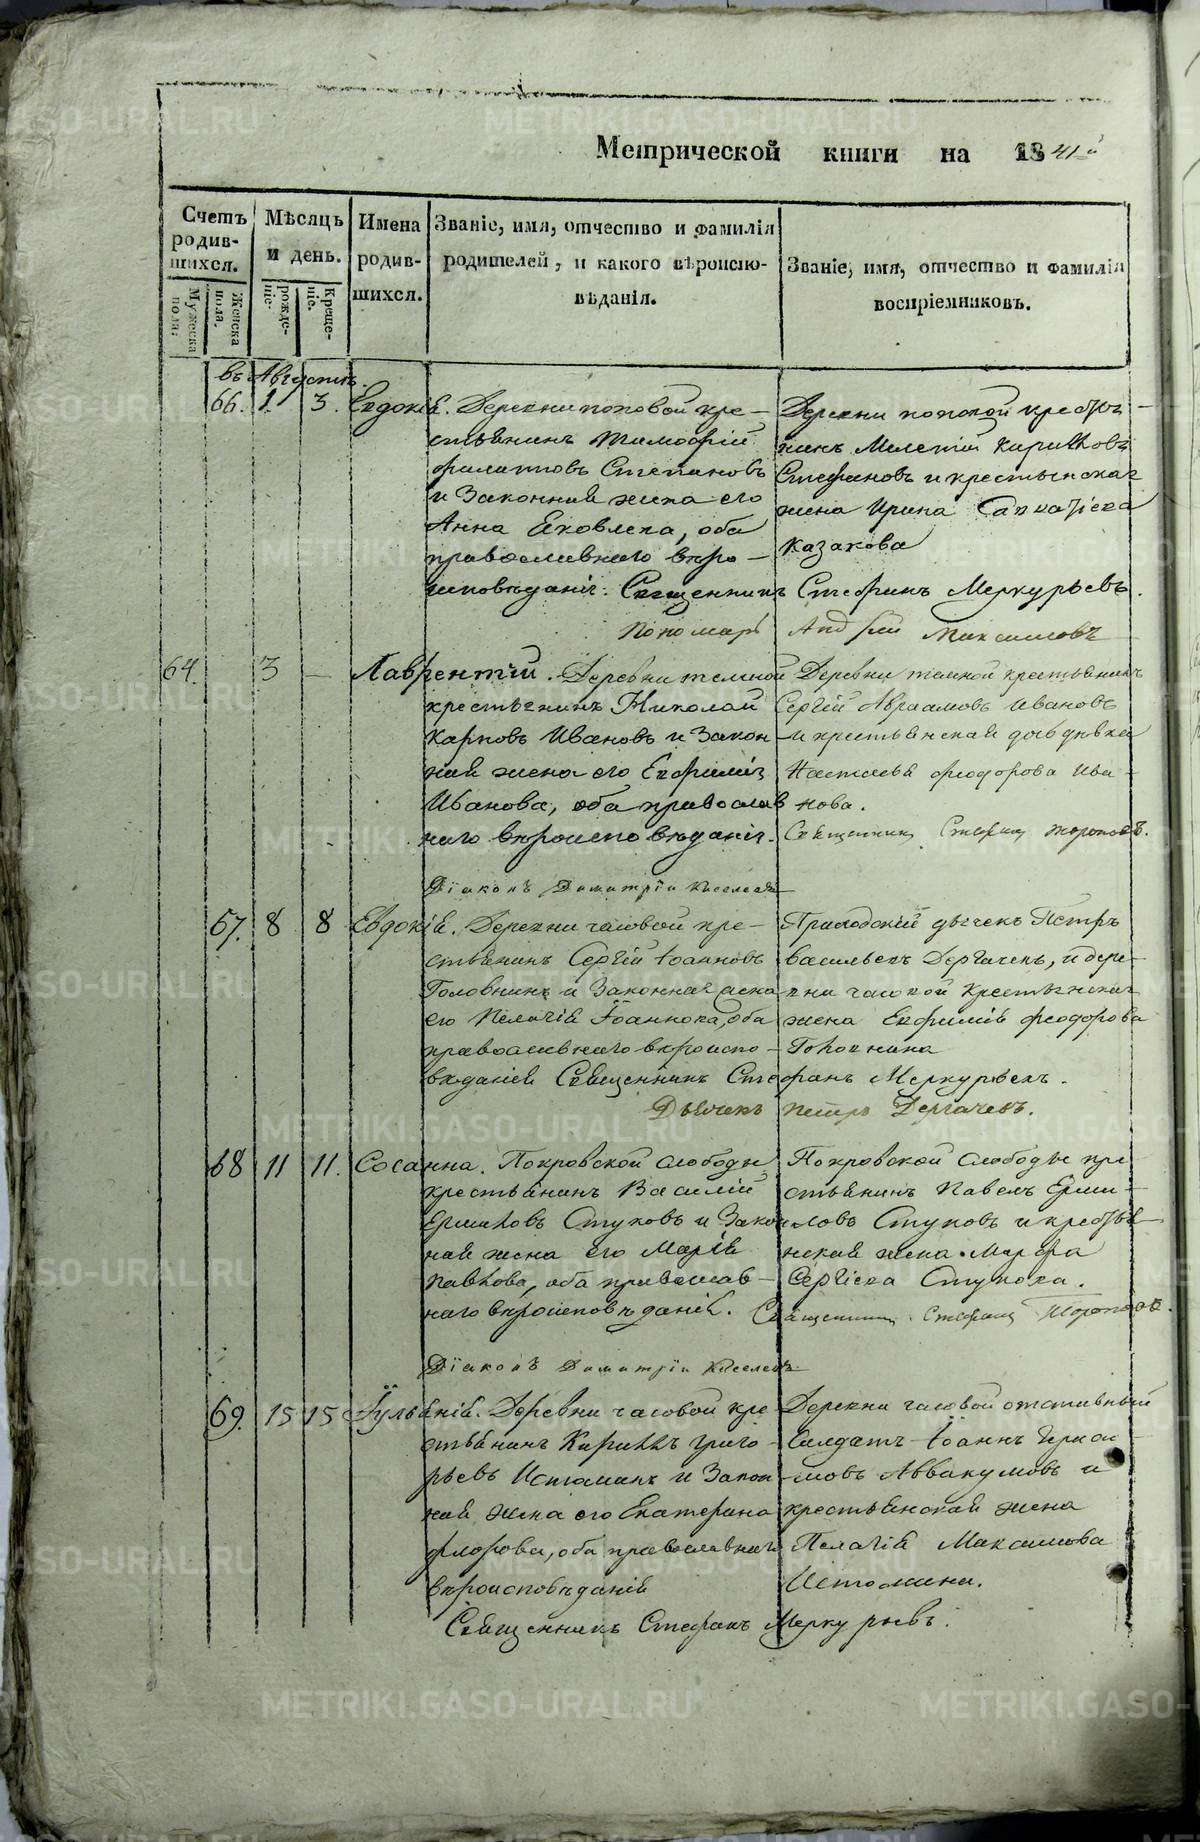 Метрической книги на 1841й
Счетъ родившихся.
Мужеска пола.
Женска пола.
Мѣсяцъ и день.
рожденіе.
Крещеніе.
Имена родившихся.
Званіе, имя, отчество и фамилія
родителей, и какого вѣроиспо-
вѣданія.
Званіе, имя, отчество и фамилія
воспріемниковъ.
въ Августѣ.
66. 1. 3. Евдокія. Деревни поповой кре-
стьянинъ Тимофей
Филатовъ Степановъ
и Законная жена его
Анна Яковлева, оба
православнаго вѣро-
исповѣданія. Священникъ Стефанъ Меркурьевъ.
Деревни поповой крестья-
нинъ Мелетій Кириловъ
Стефановъ и крестьянская
жена Ирина Савватіева
Казакова
Пономарь Андрей Максимовъ
64. 3 — Лаврентій. Деревни темной
крестьянинъ Николай
Карповъ Ивановъ и Закон-
ная жена его Евфимія
Иванова, оба православ
наго вѣроисповѣданія.
Деревни темной крестьянинъ
Сергій Авраамовъ Ивановъ
и крестьянская дѣвка
Настасья Феодорова Ива-
нова.
Священникъ Стефанъ Топорковъ.
Діаконъ Димитрій Киселевъ
67. 8 8 Евдокія. Деревни часовой кре-
стьянинъ Сергій Іоанновъ
Головнинъ и Законная жена
его Пелагія Іоаннова, оба
православнаго вѣроиспо-
вѣданія Священникъ Стефанъ Меркурьевъ.
Приходскій дьячекъ Петръ
Васильевъ Дергачевъ, и дере-
вни часовой Крестьянская
жена Евфимія Феодорова
Головнина
Дьячекъ Петръ Дергачевъ.
68 11 11. Сосанна. Покровской слободы
крестьянинъ Василій
Ермиловъ Стуковъ и Закон
ная жена его Марія
Павлова, оба православ-
наго вѣроисповѣданія.
Покровской слободы кре-
стьянинъ Павелъ Ерми-
ловъ Стуковъ и крестья-
нская жена Марфа
Сергіева Стукова.
Священникъ Стефанъ Топорковъ.
Діаконъ Димитрій Киселевъ
69. 15 15 Іуліанія. Деревни часовой кре
стьянинъ Кирилъ Григо-
рьевъ Истоминъ и Закон
ная жена его Екатерина
Флорова, оба православнаго
вѣроисповѣданія
Деревни часовой отставный
Солдатъ Іоаннъ
Аввакумовъ и
крестьянская жена
Пелагія Максимова
Истомина.
Священникъ Стефанъ Меркурьевъ.
METRIKI.GASO-URAL.RU